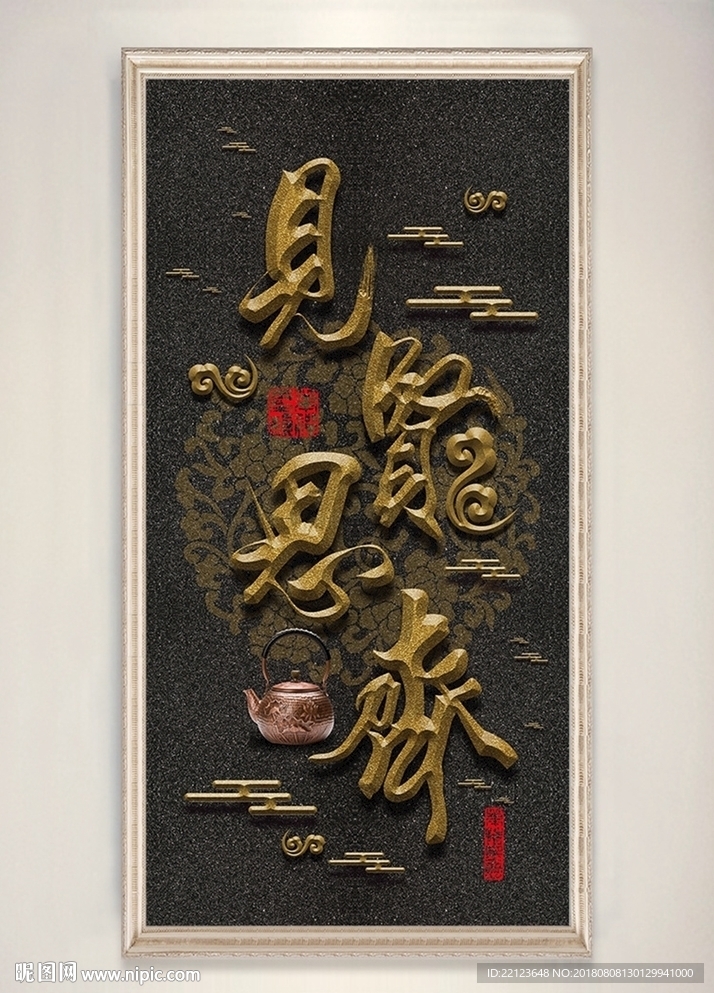 見
賢
思
齊
昵图网 www.nipic.com
ID:22123648 NO:20180808130129941000